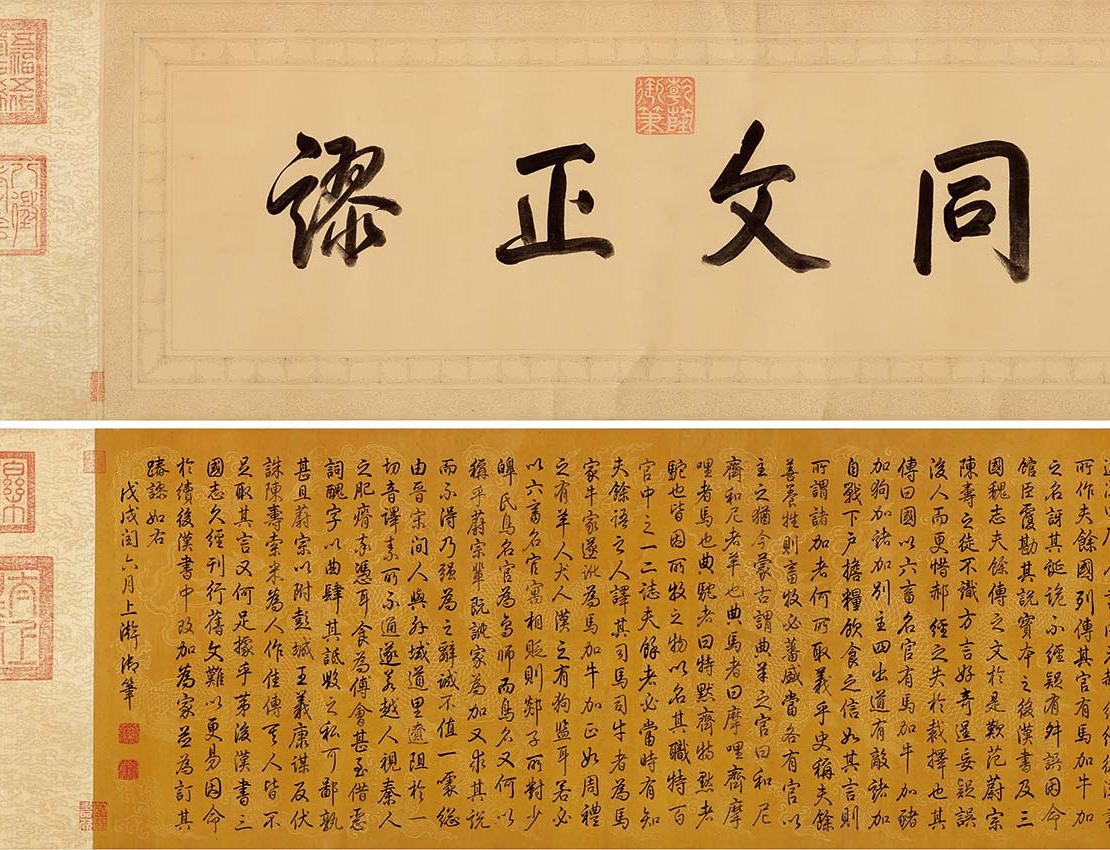 同文正謬
乾隆御筆
所作夫餘國列傳其官有馬加牛加
之名訝其誕詭不經疑有舛誤因命
館臣覆勘其說實本之後漢書及三
國魏志夫餘傳之文於是歎范蔚宗
陳壽之徒不識方言好奇逞妄疑誤
後人而更惜郝經之失於裁擇也其
傳曰國以六畜名官有馬加牛加豬
加狗加諸加別主四出道有敵諸加
自戰下戶擔糧飲食之信如其言則
所謂諸加者何所取義乎史稱夫餘
善養牲則畜牧必蕃盛當各有官以
主之猶今蒙古謂典羊之官曰和尼
齊和尼者羊也典馬者曰摩哩齊摩
哩者馬也典駝者曰特默齊特默者
駝也皆因所牧之物以名其職特百
官中之一二誌夫餘者必當時有知
夫餘語之人譯其司馬司牛者為馬
家牛家遂訛為馬加牛加正如周禮
之有羊人犬人漢之有狗監耳若必
以六畜名官寓相貶則郯子所對少
皞氏鳥名官為鳥師而鳥名又何以
稱乎蔚宗輩既訛家為加又求其說
而不得乃強為之辭誠不值一噱總
由晉宋間人與外域道里遼阻於一
切音譯素所不通遂若越人視秦人
之肥瘠率憑耳食為傅會甚至借惡
詞醜字以曲肆其詆毀之私可鄙孰
甚且蔚宗以附彭城王義康謀反伏
誅陳壽索米為人作佳傳其人皆不
足取其言又何足據乎第後漢書三
國志久經刊行舊文難以更易因命
於續後漢書中改加為家並為訂其
踳謬如右
戊戌閏六月上澣御筆